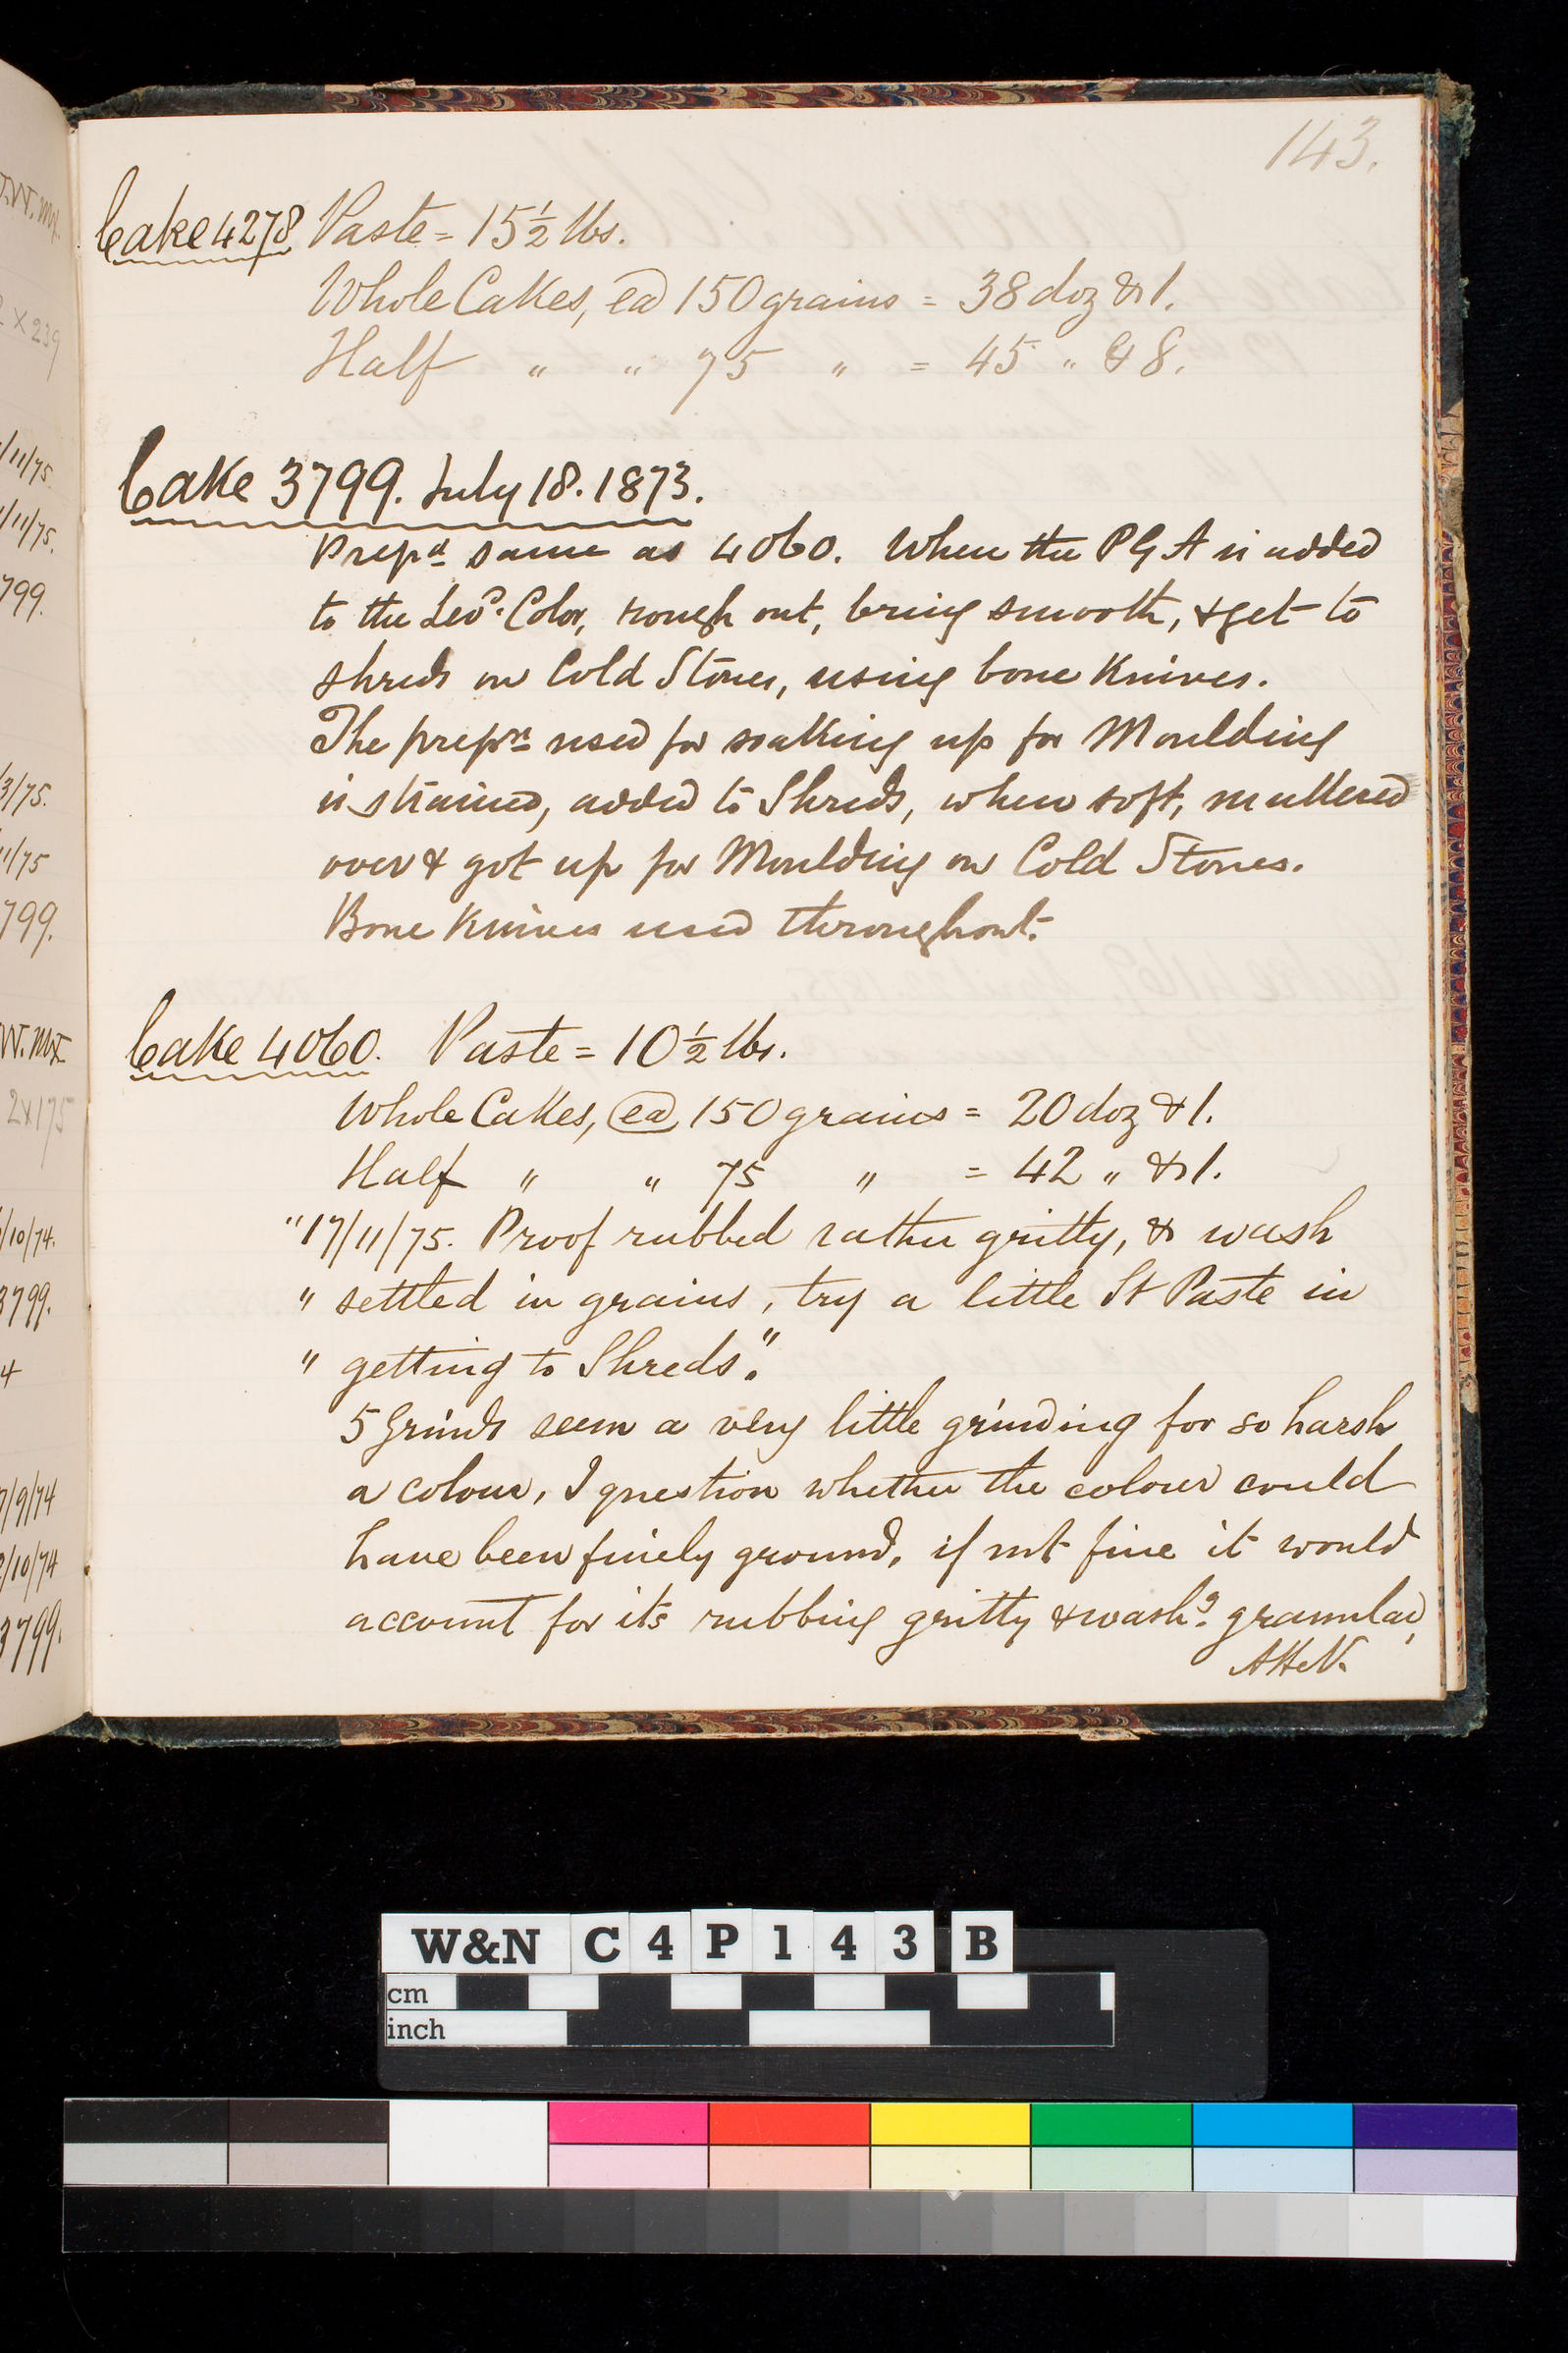 143.
Cake 4278. Paste = 15½ lbs.
Whole Cakes, ea 150 grains = 38 doz & 1.
Half " " 75 " = 45 " & 8.
Cake 3799. July 18. 1873.
Prepd same as 4060. When the PGA is added
to the Levd. Color, rough out, bring smooth, & get to
shreds on Cold Stones, using bone Knives.
The prepn used for soaking up for Moulding
is strained, added to Shreds, when soft, mullered
over & got up for Moulding on Cold Stones.
Bone Knives used throughout.
Cake 4060. Paste = 10½ lbs.
Whole Cakes, ea 150 grains = 20 doz & 1.
Half " " 75 " = 42 " & 1.
"17/11/75. Proof rubbed rather gritty, & wash
" settled in grains, try a little St Paste in
" getting to Shreds."
5 Grinds seem a very little grinding for so harsh
a colour, I question whether the colour could
have been finely ground, if not fine it would
account for its rubbing gritty & washg. granular,
799.
3/75.
1/75
799.
W. Mx
2x175
/10/74.
3799.
4
/9/74
/10/74
3799.
W&N C4P143B
cm
inch